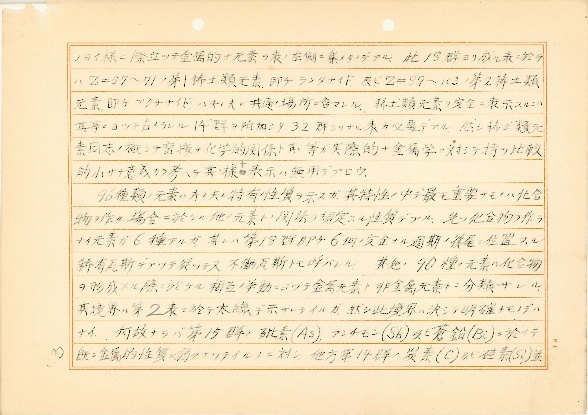 ノヨイ様ニ際立ツテ金属的ナ元素ヲ表ノ左側ニ集メタノデアル。此18群ヨリ成ル表ニ於テ
ハZ=57〜71ノ第1稀土類元素即チランタナイド及ビZ=89〜103ノ第2稀土類
元素即チアクチナイドハ夫々共通ノ場所ニ含マレル。稀土類元素ヲ完全ニ表示スルニハ
ヨツテ占メラレル14群ヲ附加シタ32群ヨリナル表ガ必要デアル。然シ稀土類元
素同志ノ極メテ密接ナ化学的関係ト其等ガ実際的ナ金属学ニ対シテ持ツ比較
的小サナ意義ヲ考ヘテ其様ナ表示ハ無用デアロウ。
96種類ノ元素ハ夫々特有ノ性質ヲ示スガ其特性ノ中デ最モ重要ナモノハ化合
物ヲ作ル場合ニ於ケル他ノ元素トノ関係ヲ規定スル性質デアル。先ヅ化合物ヲ作ラ
ナイ元素ガ6種アルガ其レハ第18群即チ6個ノ完全ナル週期ノ最尾ニ位置スル
稀有瓦斯デアツテ 不働瓦斯トモ呼バレル。其他ノ90種ノ元素ハ化合物
ヲ形成スル際ニ於ケル相互ノ挙動ニヨツテ金属元素ト非金属元素トニ分類サレル。
其境界ハ第2表ニ於テ太線デ示サレテイルガ然シ此境界ハ決シテ明確ナモノデハ
ナイ。何故ナラバ第15群ノ砒素(As)、アンチモン(Sb)及ビ蒼鉛(Bi)ニ於イテ
既ニ金属的性質ニ弱ツテイルノニ対シ、他方第14群ノ炭素(C)及ビ硅素(Si)並